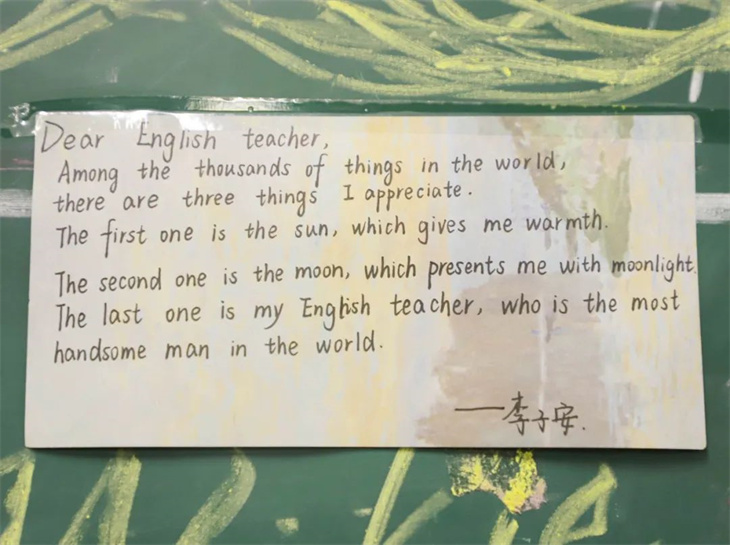 Dear English teacher,
Among the thousands of things in the world,
there are three things I appreciate.
The first one is the sun, which gives me warmth.
The second one is the moon, which presents me with moonlight.
The last one is my English teacher, who is the most
handsome man in the world.
——李子安.